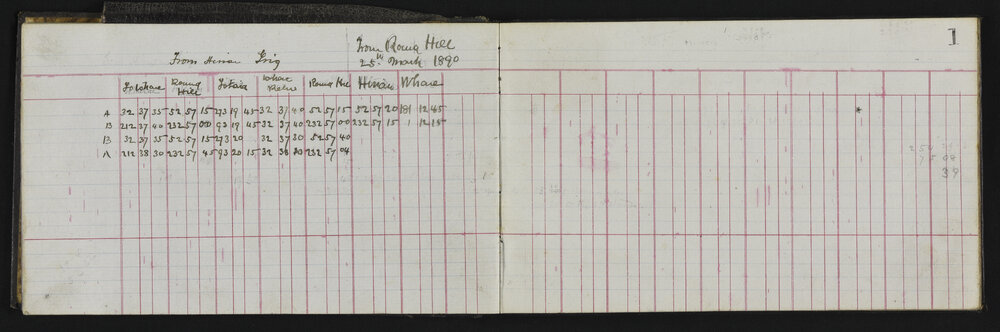 1
From Round Hill
25th March 1890
From Hinau Trig
To Whare Round Hill Whare Round Hill Hinau Whare
A 32 37 35 52 57 15 273 19 45 32 37 40 52 57 15 52 57 20 181 12 45
B 212 37 40 232 57 00 93 19 45 32 37 40 232 57 00 232 57 15 1 12 15
B 32 37 35 52 57 15 273 20 32 37 30 52 57 40
A 212 38 30 232 57 45 93 20 15 32 38 30 232 57 04
39